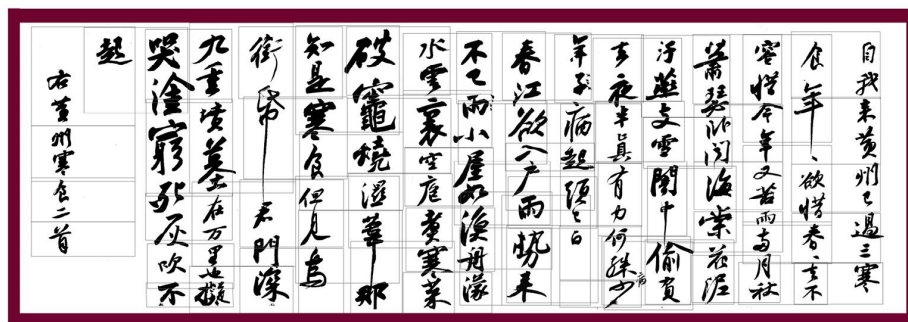 自我来黄州已過三寒
食年、欲惜春、去不
容惜今年又苦雨兩月秋
蕭瑟卧聞海棠花泥
汙燕支雪闇中偷負
去夜半真有力何殊病少
年子病起頭已白
春江欲入户雨勢来
不已雨小屋如漁舟濛
水雲裏空庖煮寒菜
破竈燒濕葦那
知是寒食但見烏
銜帋君門深
九重墳墓在万里也擬
哭塗窮死灰吹不
起
右黄州寒食二首